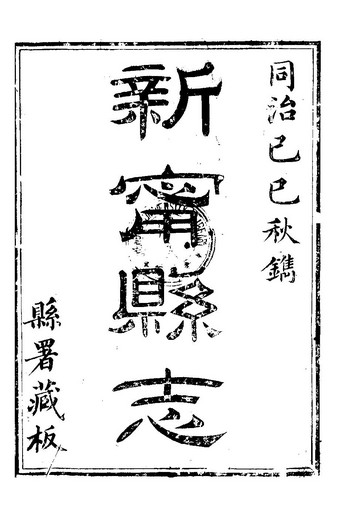 同治己巳秋鐫
新甯縣志
縣署藏板